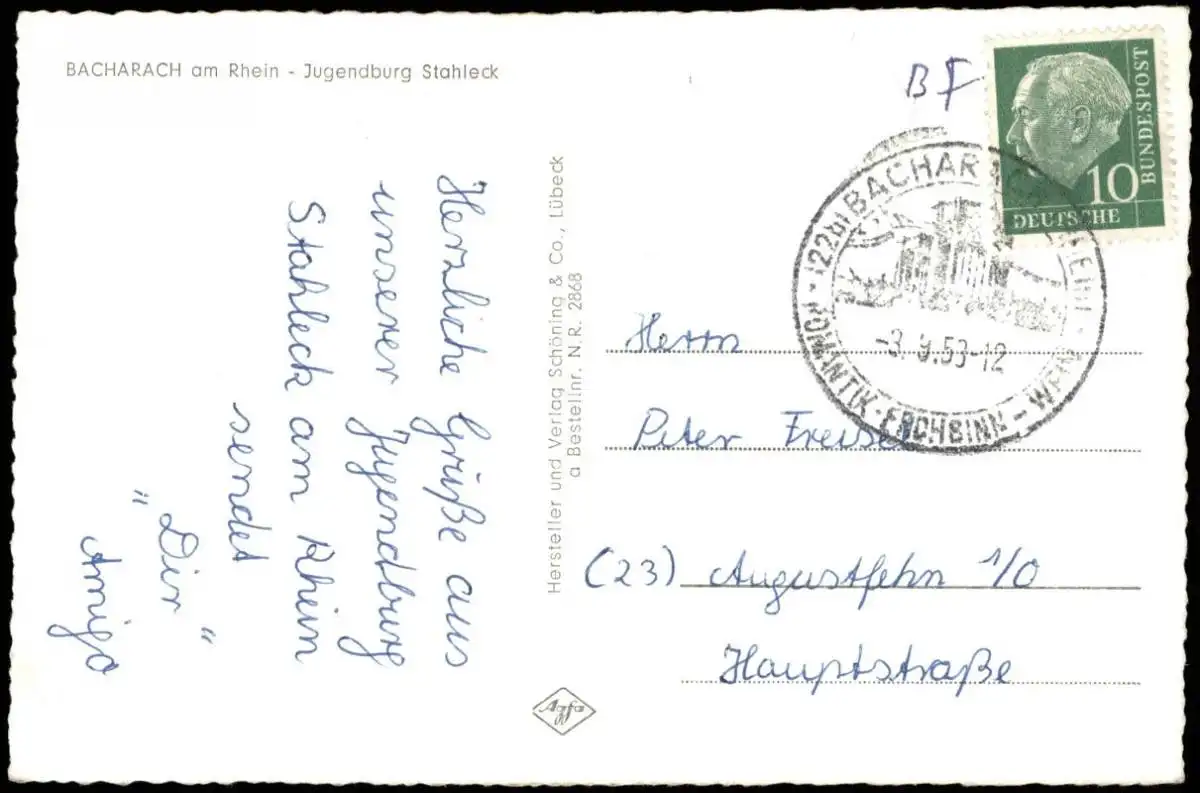 BACHARACH am Rhein - Jugendburg Stahleck
Herzliche Grüße aus
unserer Jugendburg
Stahleck am Rhein
sendet
"Dir"
Amigo
Hersteller und Verlag Schöning & Co., Lübeck
a Bestellnr. N.R. 2868
Agfa
BF
10
DEUTSCHE
BUNDESPOST
(22b) BACHARACH RHEIN
-3.9.53-12
ROMANTIK · FROHSINN - WEIN
Herrn
Peter
(23) Augustfehn 1/O
Hauptstraße